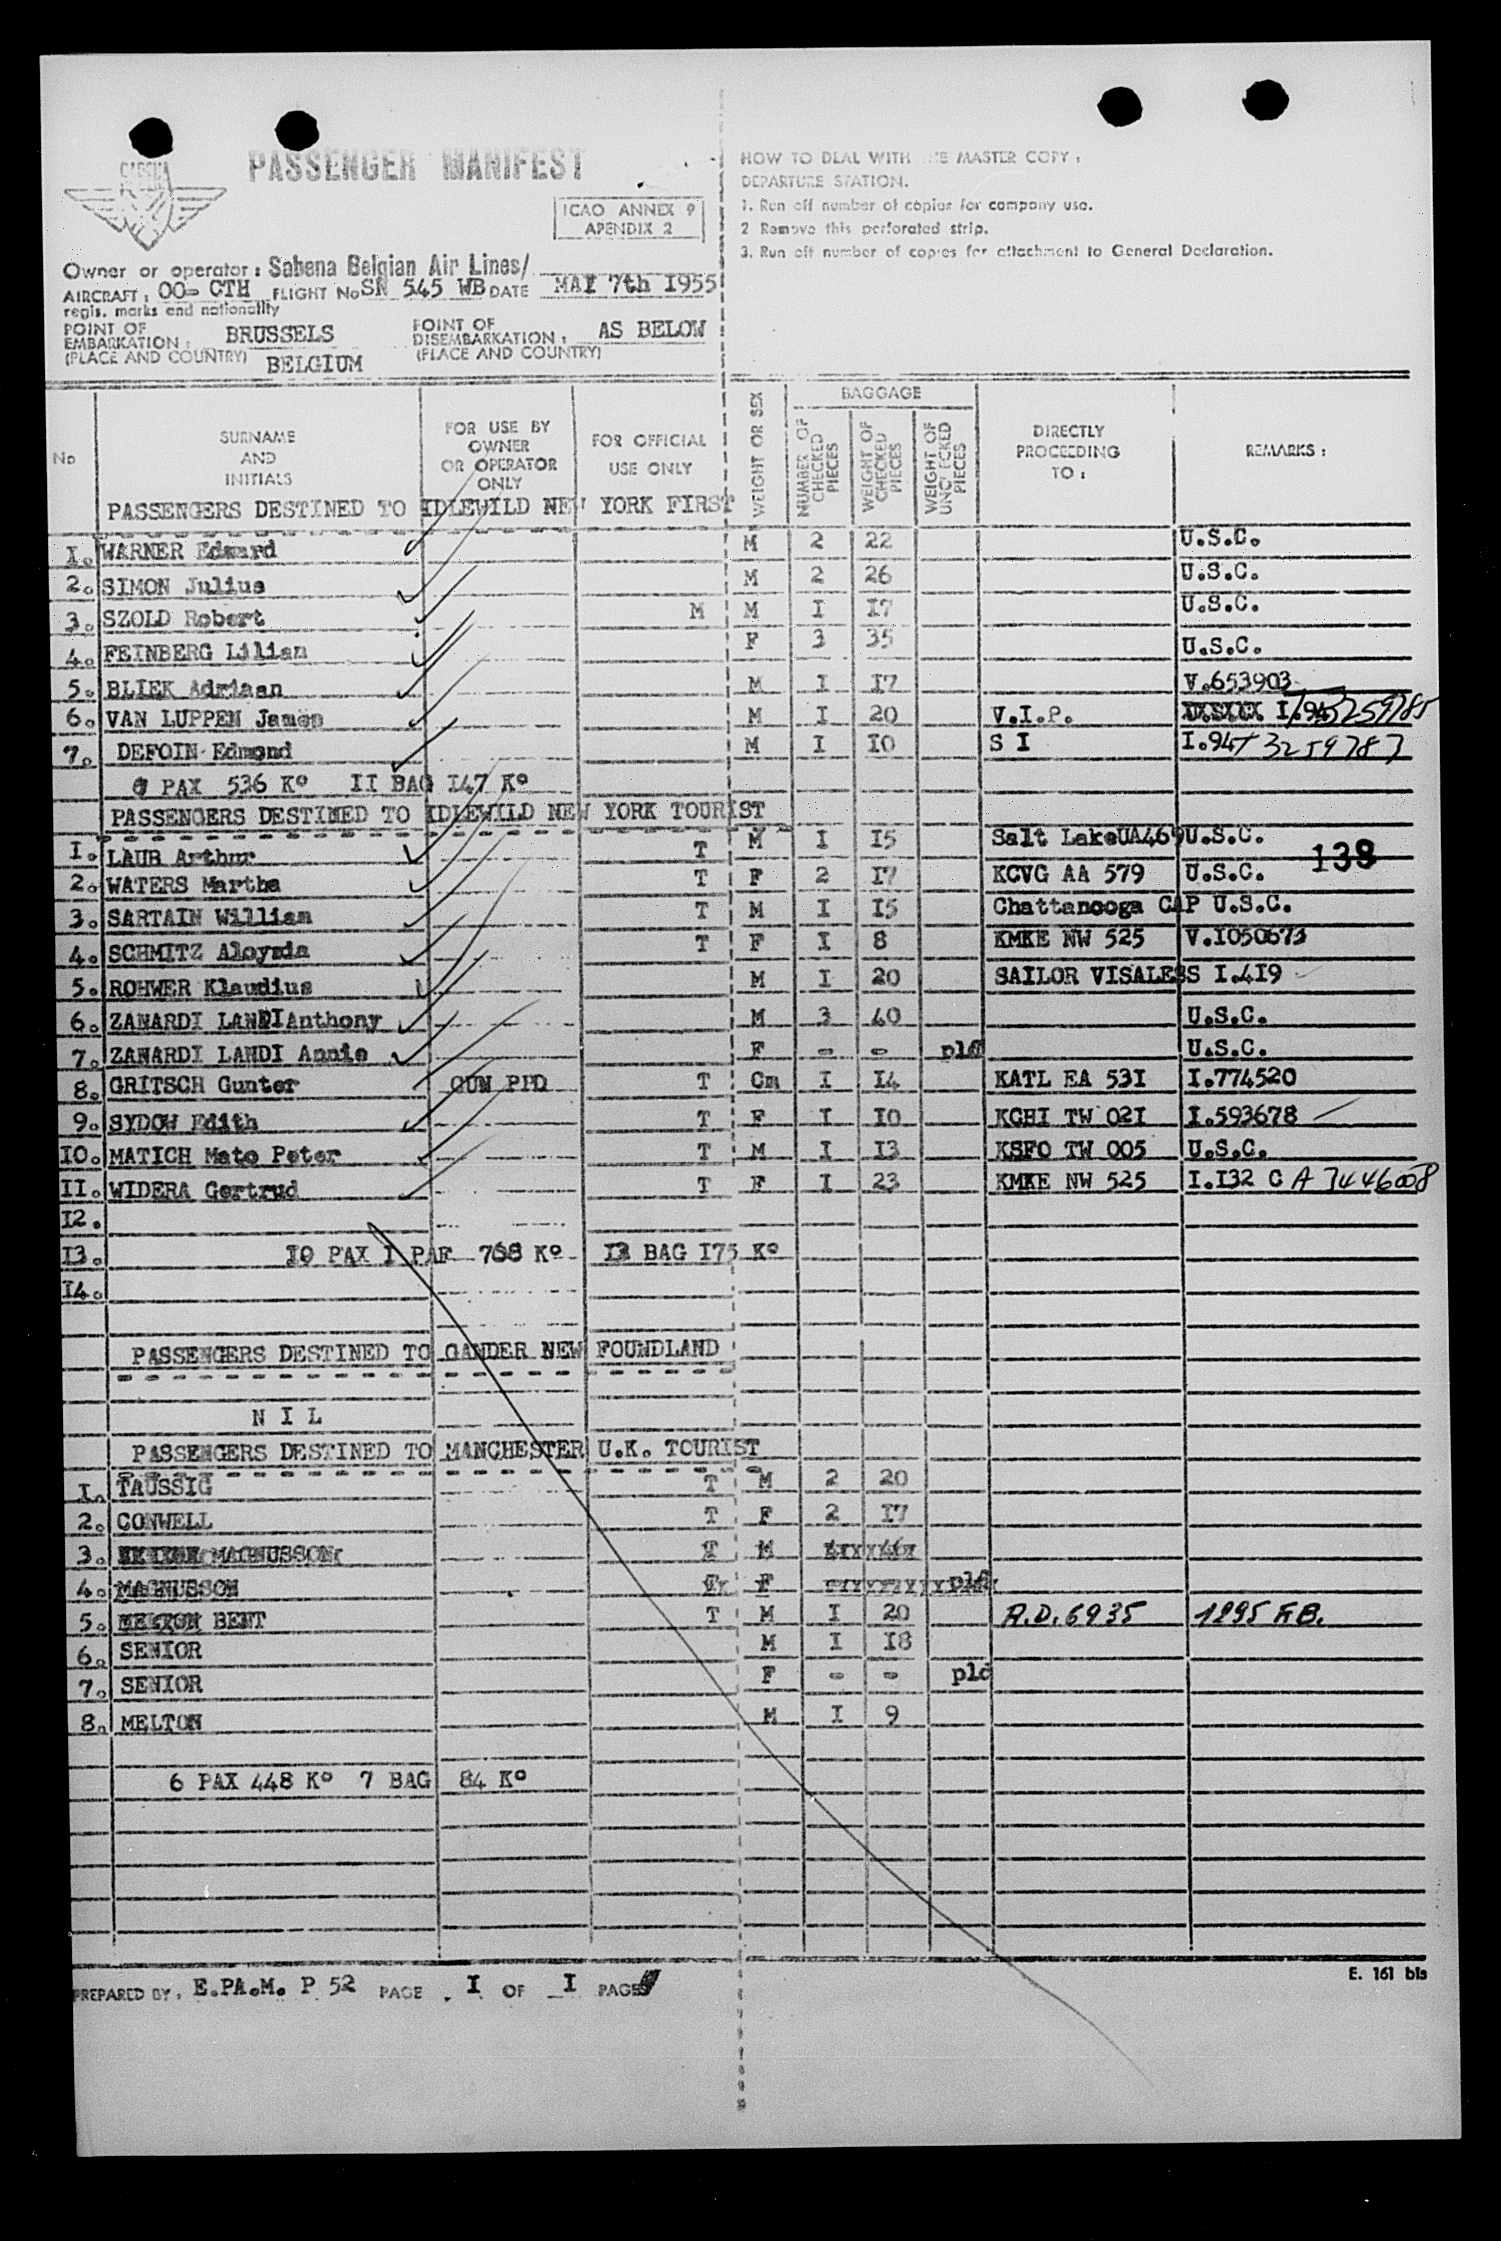 SABENA
PASSENGER MANIFEST
ICAO ANNEX 9
APENDIX 2
HOW TO DEAL WITH THE MASTER COPY :
DEPARTURE STATION.
1. Run off number of copies for company use.
2 Remove this perforated strip.
3. Run off number of copies for attachment to General Declaration.
Owner or operator : Sabena Belgian Air Lines/
AIRCRAFT : OO- CTH FLIGHT No SN 545 WB DATE MAI 7th 1955
regis. marks and nationality
POINT OF EMBARKATION : BRUSSELS POINT OF DISEMBARKATION : AS BELOW
(PLACE AND COUNTRY) BELGIUM (PLACE AND COUNTRY)
No SURNAME AND INITIALS FOR USE BY OWNER OR OPERATOR ONLY FOR OFFICIAL USE ONLY WEIGHT OR SEX BAGGAGE NUMBER OF CHECKED PIECES WEIGHT OF CHECKED PIECES WEIGHT OF UNCHECKED PIECES DIRECTLY PROCEEDING TO : REMARKS :
PASSENGERS DESTINED TO IDLEWILD NEW YORK FIRST
I. WARNER Edward M 2 22 U.S.C.
2. SIMON Julius M 2 26 U.S.C.
3. SZOLD Robert M M I I7 U.S.C.
4. FEINBERG Lilian F 3 35 U.S.C.
5. BLIEK Adriaan M I I7 V.653903
6. VAN LUPPEN James M I 20 V.I.P. I.94 3259785
7. DEFOIN Edmond M I I0 S I I.94 T 3259787
PAX 536 Kº II BAG I47 Kº
PASSENGERS DESTINED TO IDLEWILD NEW YORK TOURIST
I. LAUB Arthur T M I I5 Salt LakeUA469 U.S.C.
138
2. WATERS Martha T F 2 I7 KCVG AA 579 U.S.C.
3. SARTAIN William T M I I5 Chattanooga CAP U.S.C.
4. SCHMITZ Aloysia T F I 8 KMKE NW 525 V.I050673
5. ROHWER Klaudius M I 20 SAILOR VISALESS I.4I9
6. ZANARDI LANDI Anthony M 3 40 U.S.C.
7. ZANARDI LANDI Annie F - - pld U.S.C.
8. GRITSCH Gunter GUM PPD T Cm I I4 KATL EA 53I I.774520
9. SYDOW Edith T F I I0 KCHI TW 02I I.593678
I0. MATICH Mato Peter T M I I3 KSFO TW 005 U.S.C.
II. WIDERA Gertrud T F I 23 KMKE NW 525 I.I32 C A 7446008
I2.
I3. I0 PAX I PAF 768 Kº I3 BAG I75 Kº
I4.
PASSENGERS DESTINED TO GANDER NEW FOUNDLAND
N I L
PASSENGERS DESTINED TO MANCHESTER U.K. TOURIST
I. TAUSSIG T M 2 20
2. CONWELL T F 2 I7
3. MAGNUSSON T M
4. MAGNUSSON F pld
5. MELTON BENT T M I 20 A.D. 6935 1295 F.B.
6. SENIOR M I I8
7. SENIOR F - - pld
8. MELTON M I 9
6 PAX 448 Kº 7 BAG 84 Kº
PREPARED BY : E.PA.M. P 52 PAGE I OF I PAGES
E. 161 bis